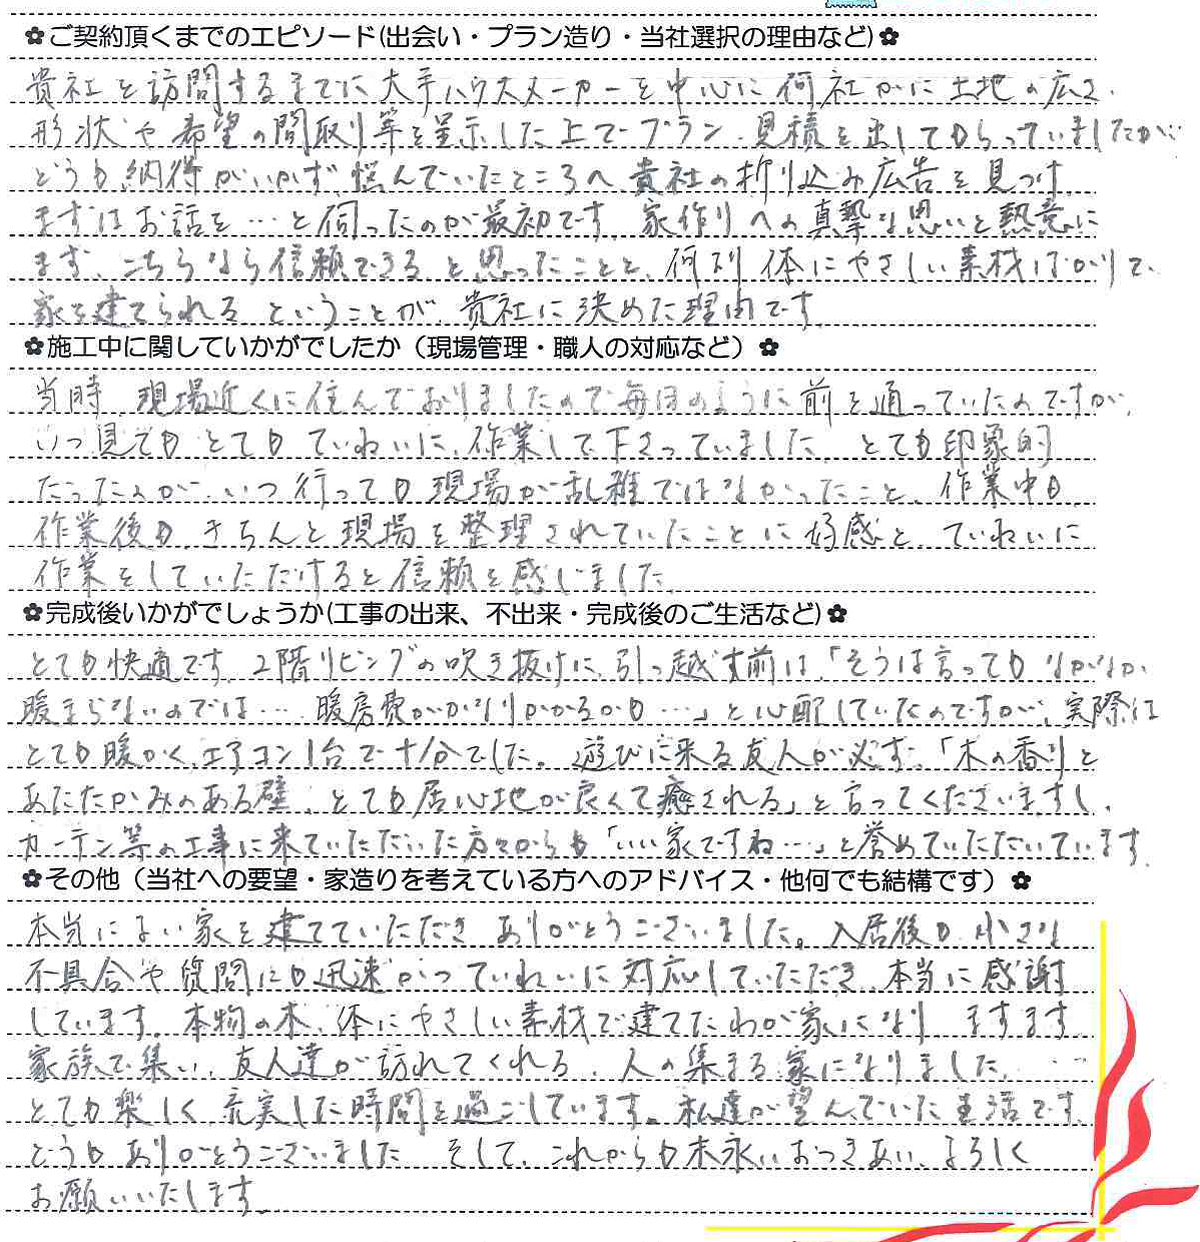 ✿ご契約頂くまでのエピソード(出会い・プラン造り・当社選択の理由など)✿
貴社を訪問するまでに大手ハウスメーカーを中心に何社かに土地の広さ、
形状や希望の間取り等を呈示した上でプラン、見積を出してもらっていましたが、
どうも納得がいかず、悩んでいたところへ貴社の折り込み広告を見つけ、
まずはお話を…と伺ったのが最初です。家作りへの真摯な思いと熱意に
まず、こちらなら信頼できると思ったことと、何より体にやさしい素材ばかりで、
家を建てられるということが、貴社に決めた理由です。
✿施工中に関していかがでしたか（現場管理・職人の対応など）✿
当時、現場近くに住んでおりましたので毎日のように前を通っていたのですが、
いつ見てもとてもていねいに、作業して下さっていました。とても印象的
だったのが、いつ行っても現場が乱雑ではなかったこと、作業中も
作業後も、きちんと現場を整理されていたことに好感と、ていねいに
作業をしていただけると信頼を感じました。
✿完成後いかがでしょうか(工事の出来、不出来・完成後のご生活など)✿
とても快適です。2階リビングの吹き抜けに、引っ越す前は、「そうは言ってもなかなか
暖まらないのでは…、暖房費がかなりかかるかも…」と心配していたのですが、実際は
とても暖かく、エアコン1台で十分でした。遊びに来る友人が必ず、「木の香りと
あたたかみのある壁、とても居心地が良くて癒される」と言ってくださいますし、
カーテン等の工事に来ていただいた方々からも「いい家ですね…」と誉めていただいています。
✿その他（当社への要望・家造りを考えている方へのアドバイス・他何でも結構です）✿
本当によい家を建てていただきありがとうございました。入居後も、小さな
不具合や質問にも迅速かつていねいに対応していただき、本当に感謝
しています。本物の木、体にやさしい素材で建てたわが家になり、ますます
家族で集い、友人達が訪れてくれる、人の集まる家になりました。…
とても楽しく充実した時間を過ごしています。私達が望んでいた生活です。
どうもありがとうございました。そして、これからも末永いおつきあい、よろしく
お願いいたします。